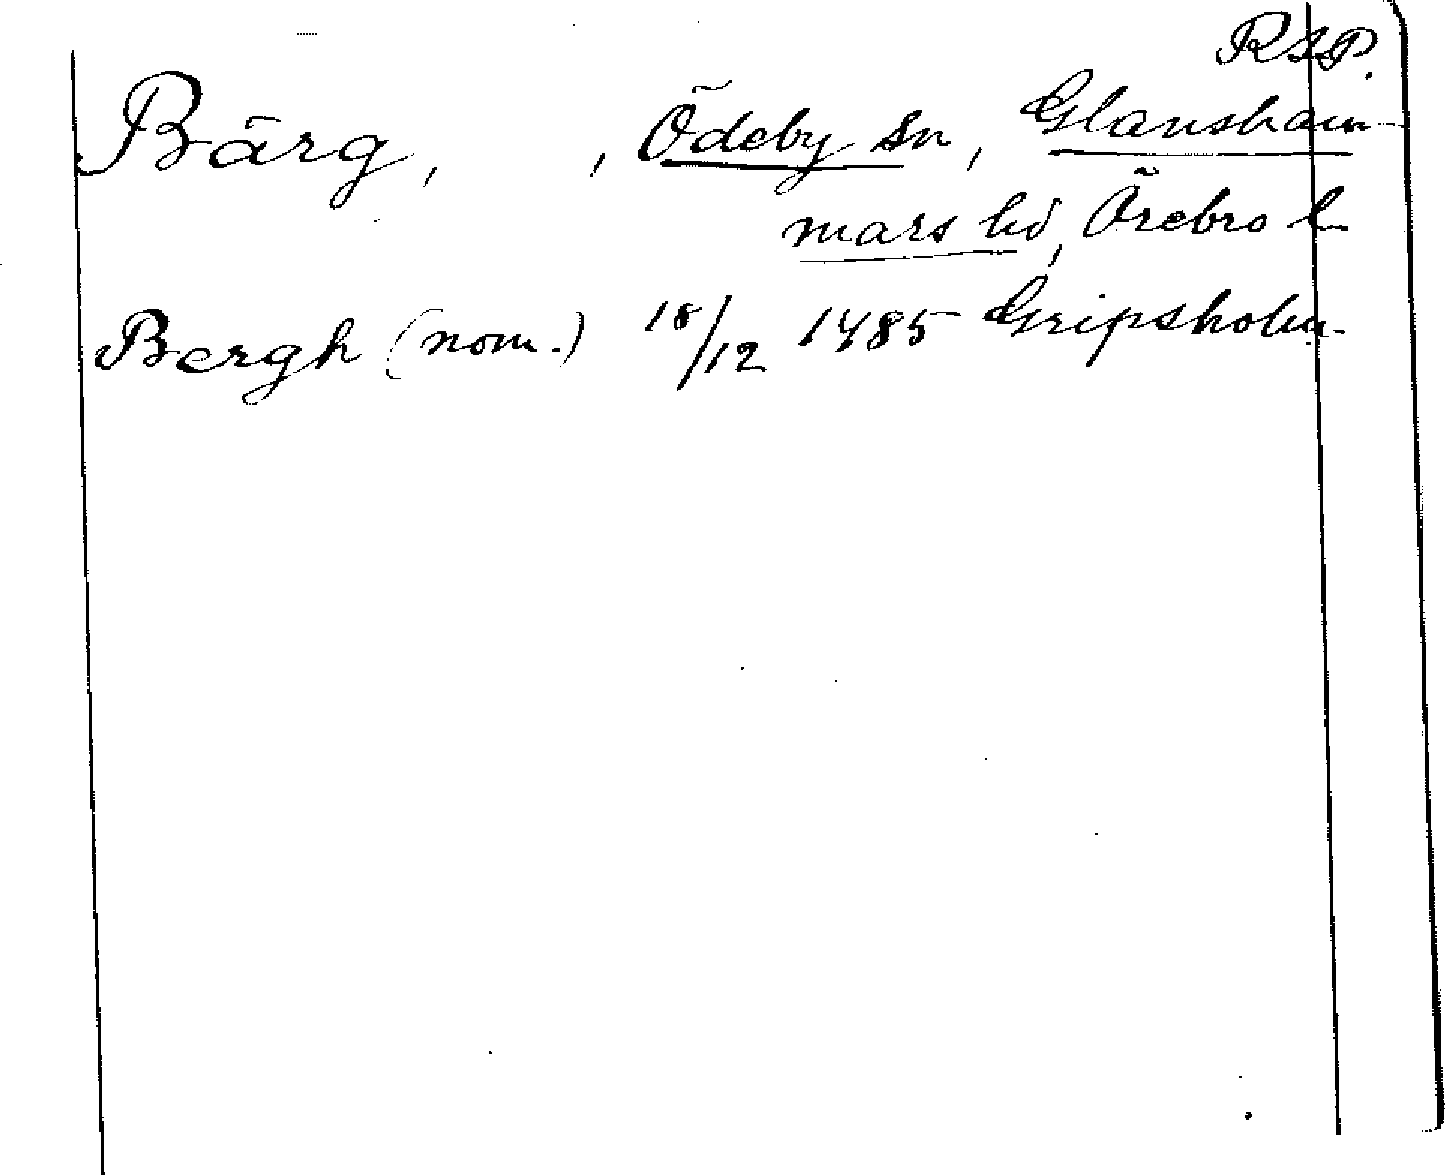 RAP.
Bärg, , Ödeby sn, Glansham-
mars hd, Örebro l.
Bergh (nom.) 18/12 1485 Gripsholm